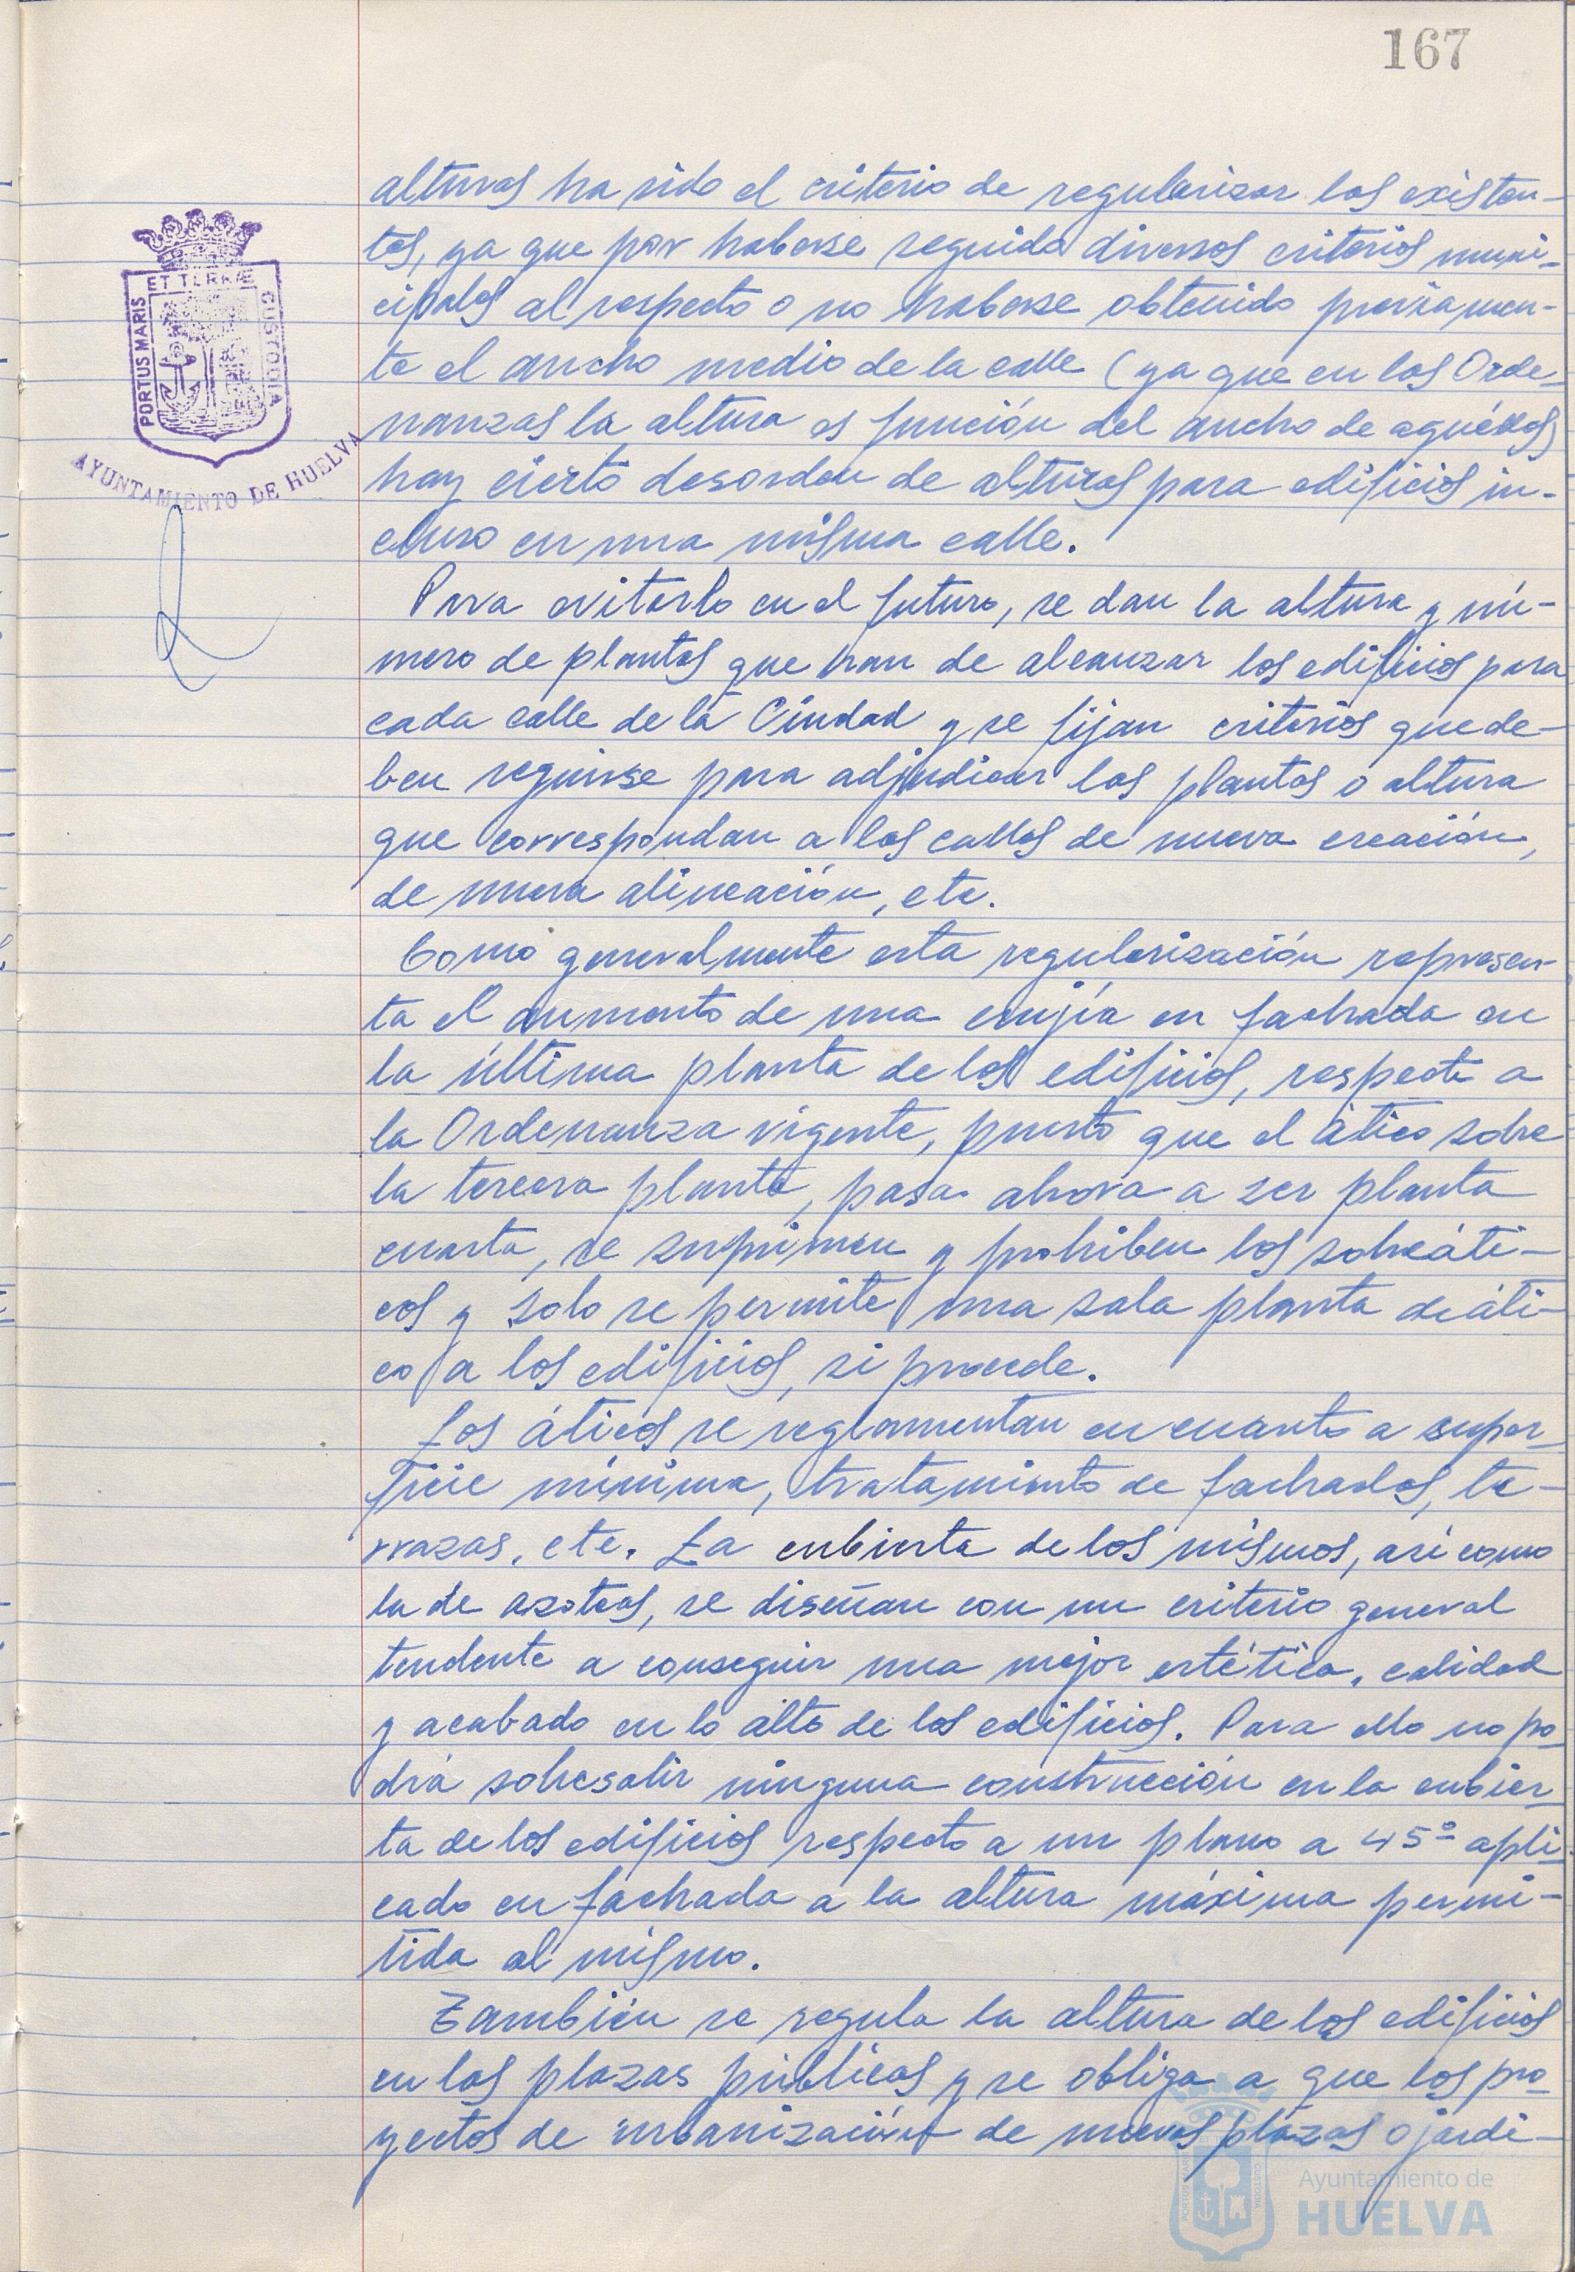 167
alturas ha sido el criterio de regularizar las existen-
tes, ya que por haberse seguido diversos criterios muni-
cipales al respecto o no haberse obtenido previamen-
te el ancho medio de la calle (ya que en las Orde-
nanzas la altura es función del ancho de aquéllas)
hay cierto desorden de alturas para edificios in-
cluso en una misma calle.
Para evitarlo en el futuro, se dan la altura y nú-
mero de plantas que han de alcanzar los edificios para
cada calle de la Ciudad y se fijan criterios que de-
ben seguirse para adjudicar las plantas o altura
que correspondan a las calles de nueva creación,
de nueva alineación, etc.
Como generalmente esta regularización represen-
ta el aumento de una crujía en fachada en
la última planta de los edificios, respecto a
la Ordenanza vigente, puesto que el ático sobre
la tercera planta, pasa ahora a ser planta
cuarta, se suprimen y prohiben los sobreáti-
cos y solo se permite una sala planta de áti-
co a los edificios, si procede.
Los áticos se reglamentan en cuanto a super-
ficie mínima, tratamiento de fachadas, te-
rrazas, etc. La cubierta de los mismos, así como
la de azoteas, se diseñan con un criterio general
tendente a conseguir una mejor estética, calidad
y acabado en lo alto de los edificios. Para ello no po-
drá sobresalir ninguna construcción en la cubier-
ta de los edificios respecto a un plano a 45º apli-
cado en fachada a la altura máxima permi-
tida al mismo.
También se regula la altura de los edificios
en las plazas públicas y se obliga a que los pro-
yectos de urbanización de nuevas plazas o jardi-
PORTUS MARIS ET TERRAE CUSTODIA
AYUNTAMIENTO DE HUELVA
Ayuntamiento de
HUELVA